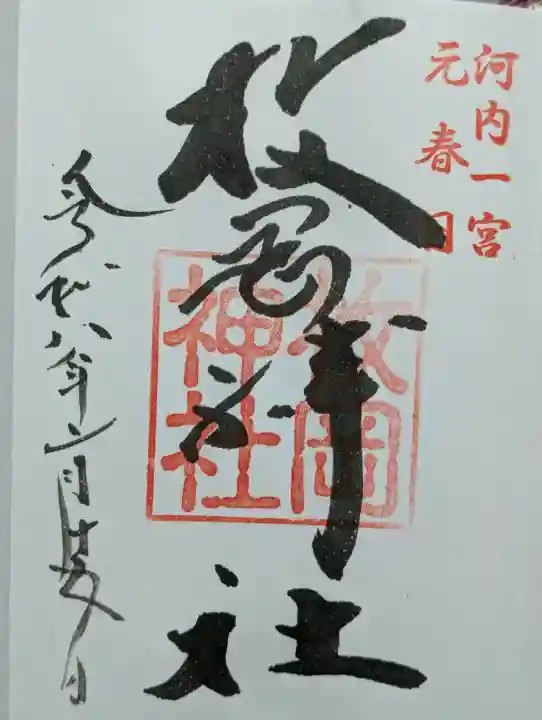 河内一宮
元春日
枚岡神社
枚岡
神社
令和八年二月